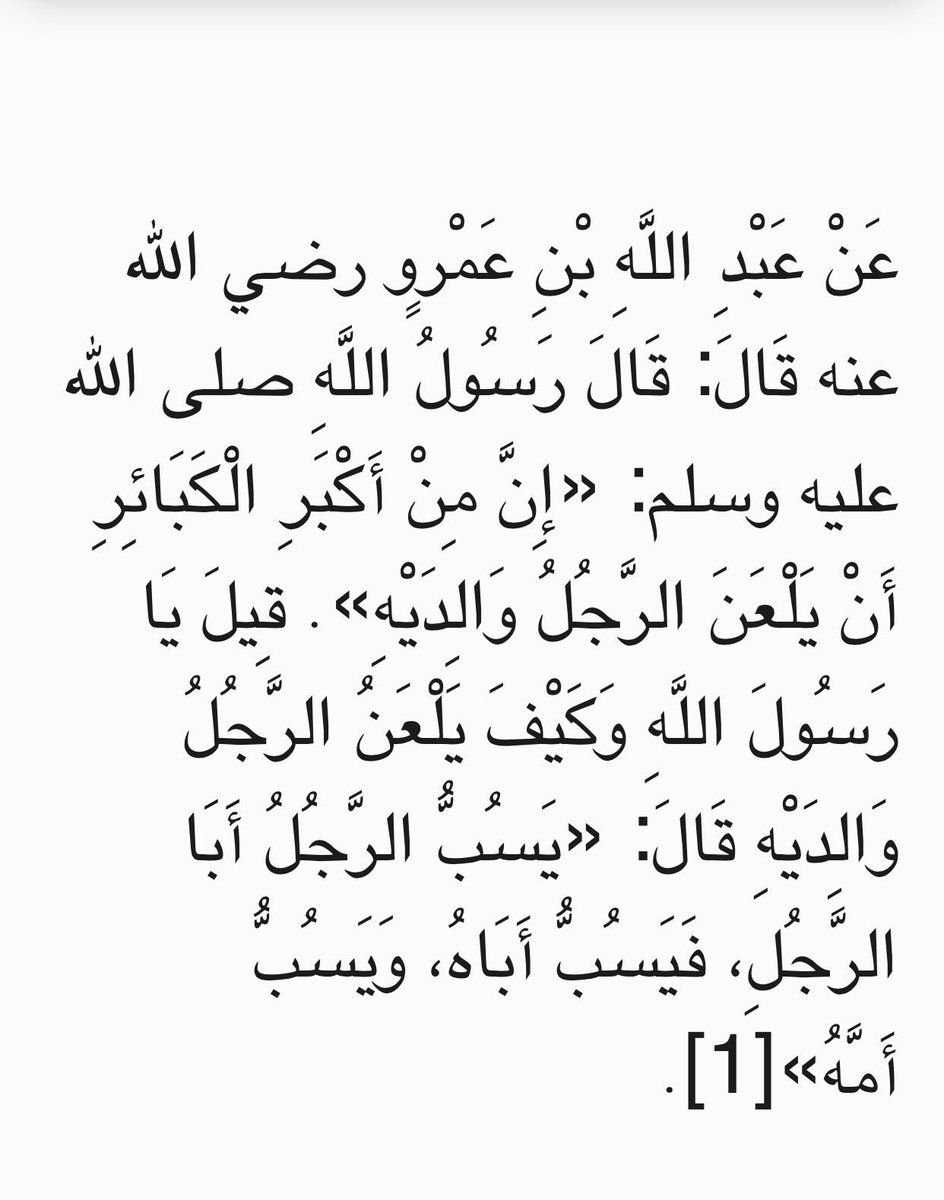 عَنْ عَبْدِ اللَّهِ بْنِ عَمْرٍو رضي الله
عنه قَالَ: قَالَ رَسُولُ اللَّهِ صلى الله
عليه وسلم: «إِنَّ مِنْ أَكْبَرِ الْكَبَائِرِ
أَنْ يَلْعَنَ الرَّجُلُ وَالِدَيْهِ». قِيلَ يَا
رَسُولَ اللَّهِ وَكَيْفَ يَلْعَنُ الرَّجُلُ
وَالِدَيْهِ قَالَ: «يَسُبُّ الرَّجُلُ أَبَا
الرَّجُلِ، فَيَسُبُّ أَبَاهُ، وَيَسُبُّ
أَمَّهُ»[1].